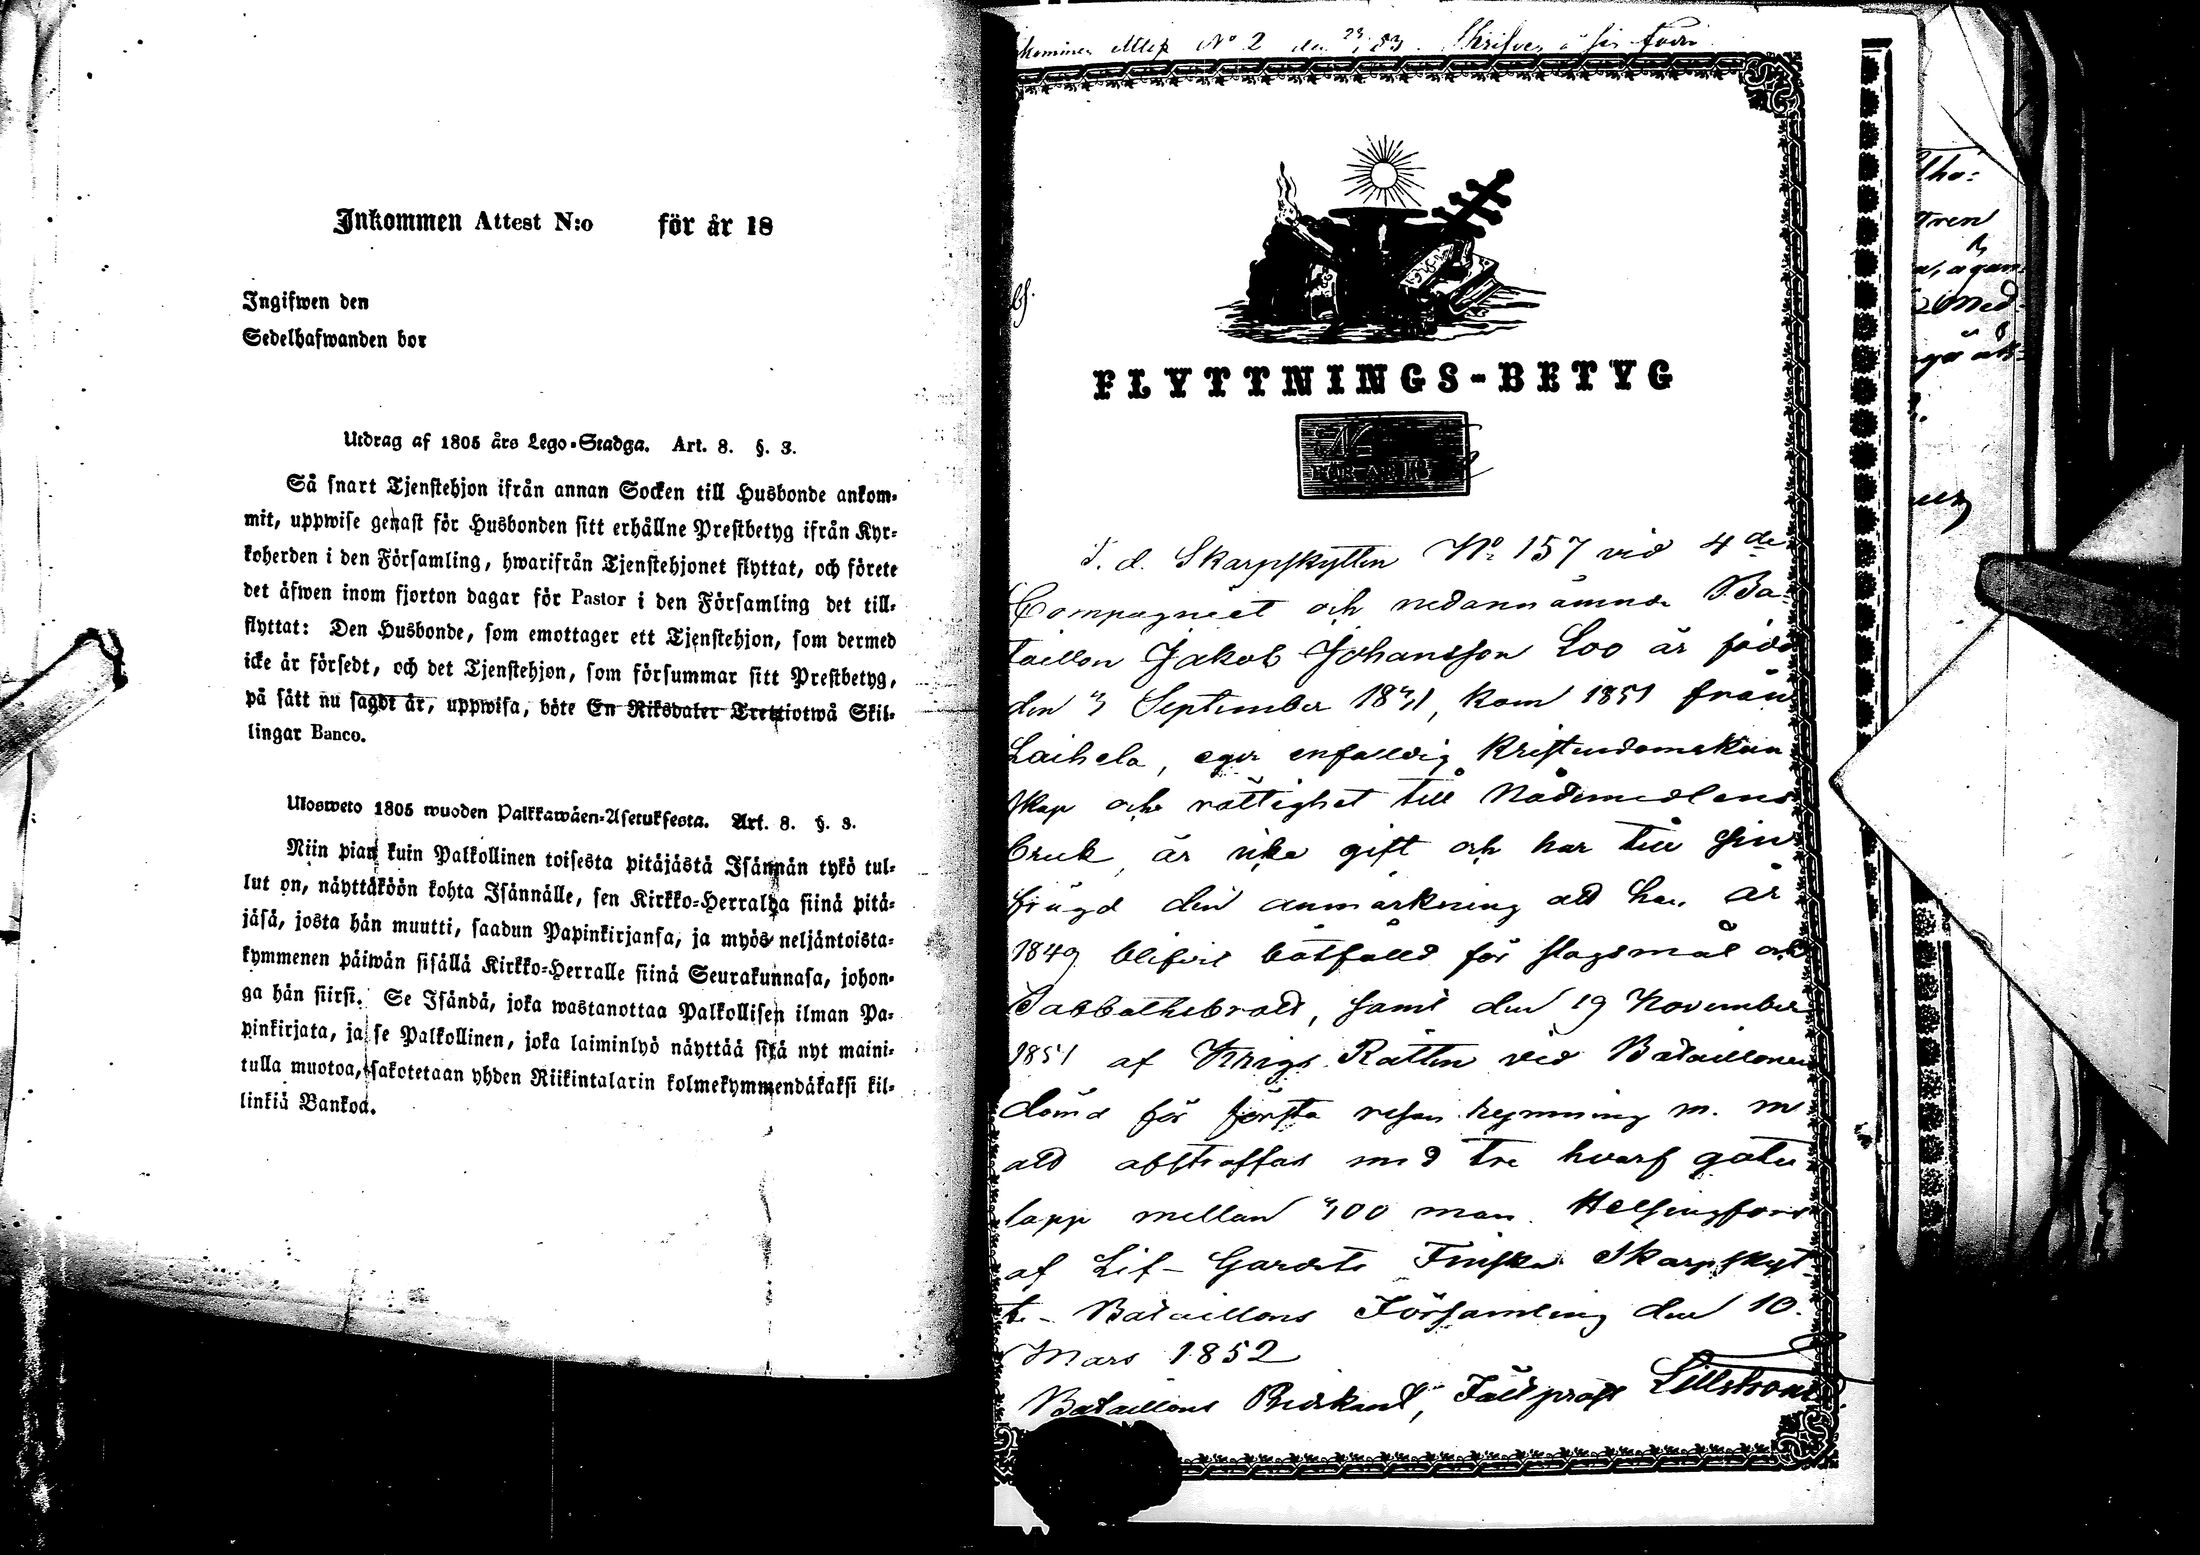 Inkommen Attest N:o för år 18
Ingifwen den
Sedelhafwanden bor
Utdrag af 1805 års Lego-Stadga. Art. 8. §. 3.
Så snart Tjenstehjon ifrån annan Socken till Husbonde ankom-
mit, uppwise genast för Husbonden sitt erhållne Prestbetyg ifrån Kyr-
koherden i den Församling, hwarifrån Tjenstehjonet flyttat, och förete
det äfwen inom fjorton dagar för Pastor i den Församling det till-
flyttat: Den Husbonde, som emottager ett Tjenstehjon, som dermed
icke är försedt, och det Tjenstehjon, som försummar sitt Prestbetyg,
på sätt nu sagdt är, uppwisa, böte En Riksdaler Trettiotwå Skil-
lingar Banco.
Ulosweto 1805 wuoden Palkkawäen-Asetuksesta. Art. 8. §. 3.
Niin pian kuin Palkollinen toisesta pitäjästä Isännän tykö tul-
lut on, näyttäköön kohta Isännälle, sen Kirkko-Herralda siinä pitä-
jäsä, josta hän muutti, saadun Papinkirjansa, ja myös neljäntoista-
kymmenen päiwän sisällä Kirkko-Herralle siinä Seurakunnasa, johon-
ga hän siirsi. Se Isändä, joka wastanottaa Palkollisen ilman Pa-
pinkirjata, ja se Palkollinen, joka laiminlyö näyttää sitä nyt maini-
tulla muotoa, sakotetaan yhden Riikintalarin kolmekymmendäkaksi kil-
linkiä Bankoa.
Attest No 2 den
FLYTTNINGS-BETYG
No
FÖR ÅR 18
F. d. Skarpskytten No 157 vid 4de
Compagniet och nedannämnde Ba-
taillon Jakob Johansson Loo är född
den 3 September 1831, kom 1851 från
Laihela, eger enfaldig Kristendomskun
skap och rättighet till Nådemedlens
bruk, är icke gift och har till sin
frägd den anmärkning att han är
1849 blifvit bötfälld för slagsmål och
Sabbathsbrott, samt den 19 November
1851 af Krigs Rätten vid Bataillonen
dömd för första resan rymning m. m
att afstraffas med tre hvarf gatu
lopp mellan 300 man. Helsingfors
af Lif-Gardets Finska Skarpskyt-
te-Bataillons Församling den 10.
Mars 1852
Bataillons Predikant, Fältprost Lillstrom